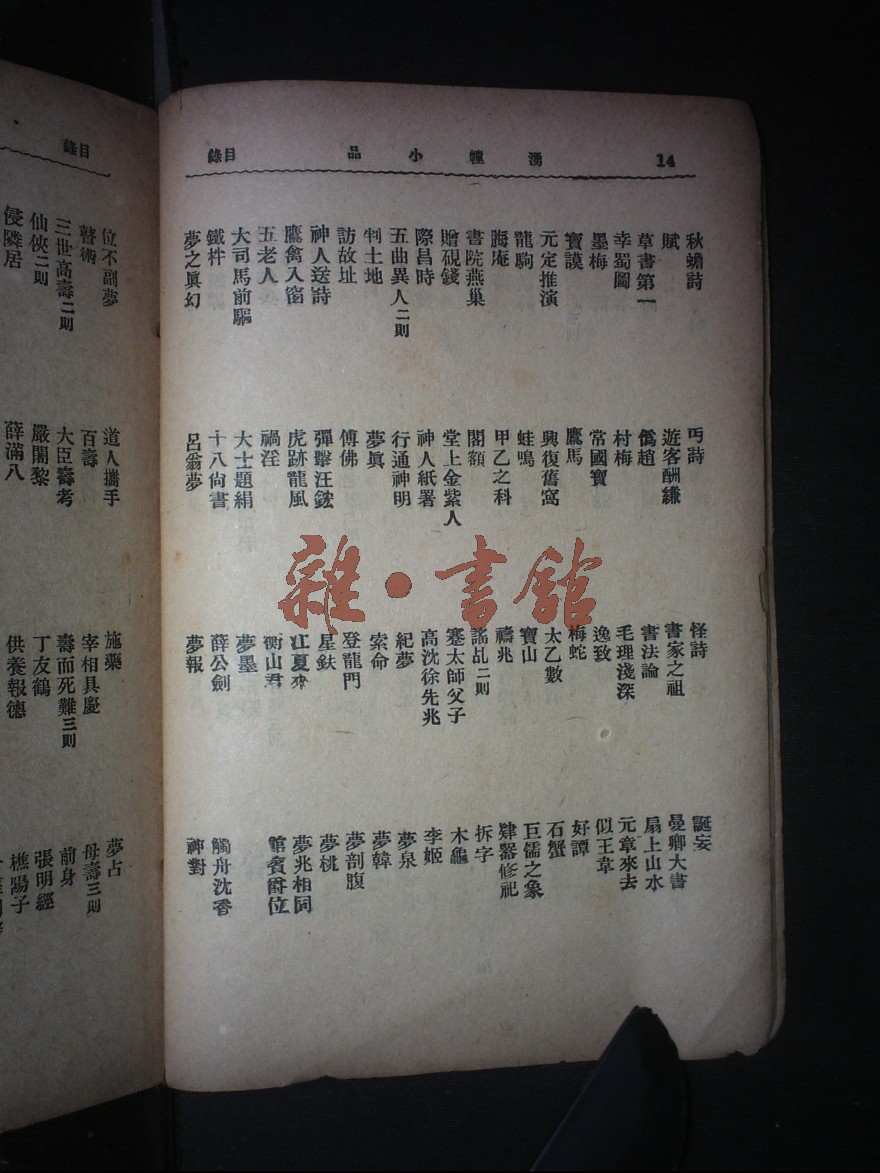 14 湧幢小品 目錄
秋蟾詩 丐詩 怪詩 誕妄
賦 遊客酬縑 書家之祖 曼卿大書
草書第一 僞趙 書法論 扇上山水
幸蜀圖 村梅 毛理淺深 元章來去
墨梅 常國寶 逸致 似王韋
寶謨 鷹馬 梅蛇 好譚
元定推演 興復舊窩 太乙數 石蟹
龍駒 蛙鳴 寶山 巨儒之象
晦庵 甲乙之科 禱兆 肄器修祀
書院燕巢 閣額 謠乩二則 拆字
贈硯錢 堂上金紫人 蹇太師父子 木龜
際昌時 神人紙署 高沈徐先兆 李姬
五曲異人二則 行通神明 紀夢 夢泉
判土地 夢眞 索命 夢韓
訪故址 傅佛 登龍門 夢剖腹
神人送詩 彈擊汪鋐 星鈇 夢桃
鷹禽入窗 虎跡龍風 江夏來 夢兆相同
五老人 禍淫 衡山君 館賓爵位
大司馬前驅 大士題絹 夢墨
鐵杵 十八尙書 薛公劍 觸舟沈香
夢之眞幻 呂翁夢 夢報 神對
目錄
位不副夢 道人攜手 施藥 夢占
瞽術 百壽 宰相具慶 母壽三則
三世高壽二則 大臣壽考 壽而死難三則 前身
仙俠二則 嚴闍黎 丁友鶴 張明經
侵隣居 薛滿八 供養報德 樵陽子
雜·書館